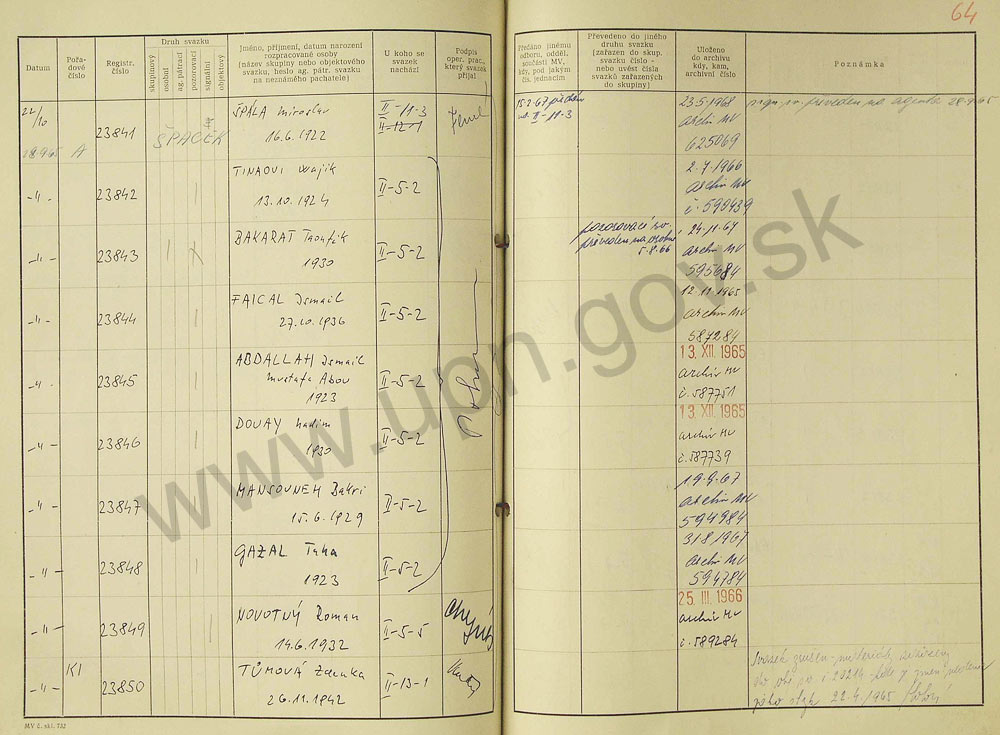 64
Datum
Pořa-
dové
číslo
Registr.
číslo
Druh svazku
skupinový
osobní
ag. pátrací
pozorovací
signální
objektový
Jméno, příjmení, datum narození
rozpracované osoby
(název skupiny nebo objektového
svazku, heslo ag. pátr. svazku
na neznámého pachatele)
U koho se
svazek
nachází
Podpis
oper. prac.,
který svazek
přijal
Předáno jinému
odboru, odděl.
součásti MV,
kdy, pod jakým
čís. jednacím
Převedeno do jiného
druhu svazku
(zařazen do skup.
svazku číslo -
nebo uvést čísla
svazků zařazených
do skupiny)
Uloženo
do archivu
kdy, kam,
archivní číslo
Poznámka
22/10
28.9.65 A
23841
SPACEK
ŠPALA Miroslav
16.6.1922
II-11-3
II-12-1
15.2.67
II-11-3
23.5.1968
Archiv MV
625069
převeden na agenta 28.9.65
-"-
23842
TINAOUI Wajik
13.10.1924
II-5-2
2.7.1966
Archiv MV
č. 590439
-"-
23843
BAKARAT Taoufik
1930
II-5-2
pozorovací sv.
převeden na osobní
5.8.66
24.11.67
Archiv MV
595684
-"-
23844
FAICAL Ismail
27.10.1936
II-5-2
12.11.1965
Archiv MV
587284
-"-
23845
ABDALLAH Ismail
Mustafa Abou
1923
II-5-2
13. XII. 1965
Archiv MV
č. 587751
-"-
23846
DOUAY Nadim
1930
II-5-2
13. XII. 1965
Archiv MV
č. 587739
-"-
23847
MANSOUNEH Bakri
15.6.1929
II-5-2
19.9.67
Archiv MV
594984
-"-
23848
GAZAL Taha
1923
II-5-2
31.8.1967
Archiv MV
594784
-"-
23849
NOVOTNÝ Roman
14.6.1932
II-5-5
25. III. 1966
Archiv MV
č. 589284
-"-
KI
23850
TŮMOVÁ Zdenka
26.11.1942
II-13-1
Svazek zrušen - materiály
22.4.1965
MV č. skl. 752
www.upn.gov.sk